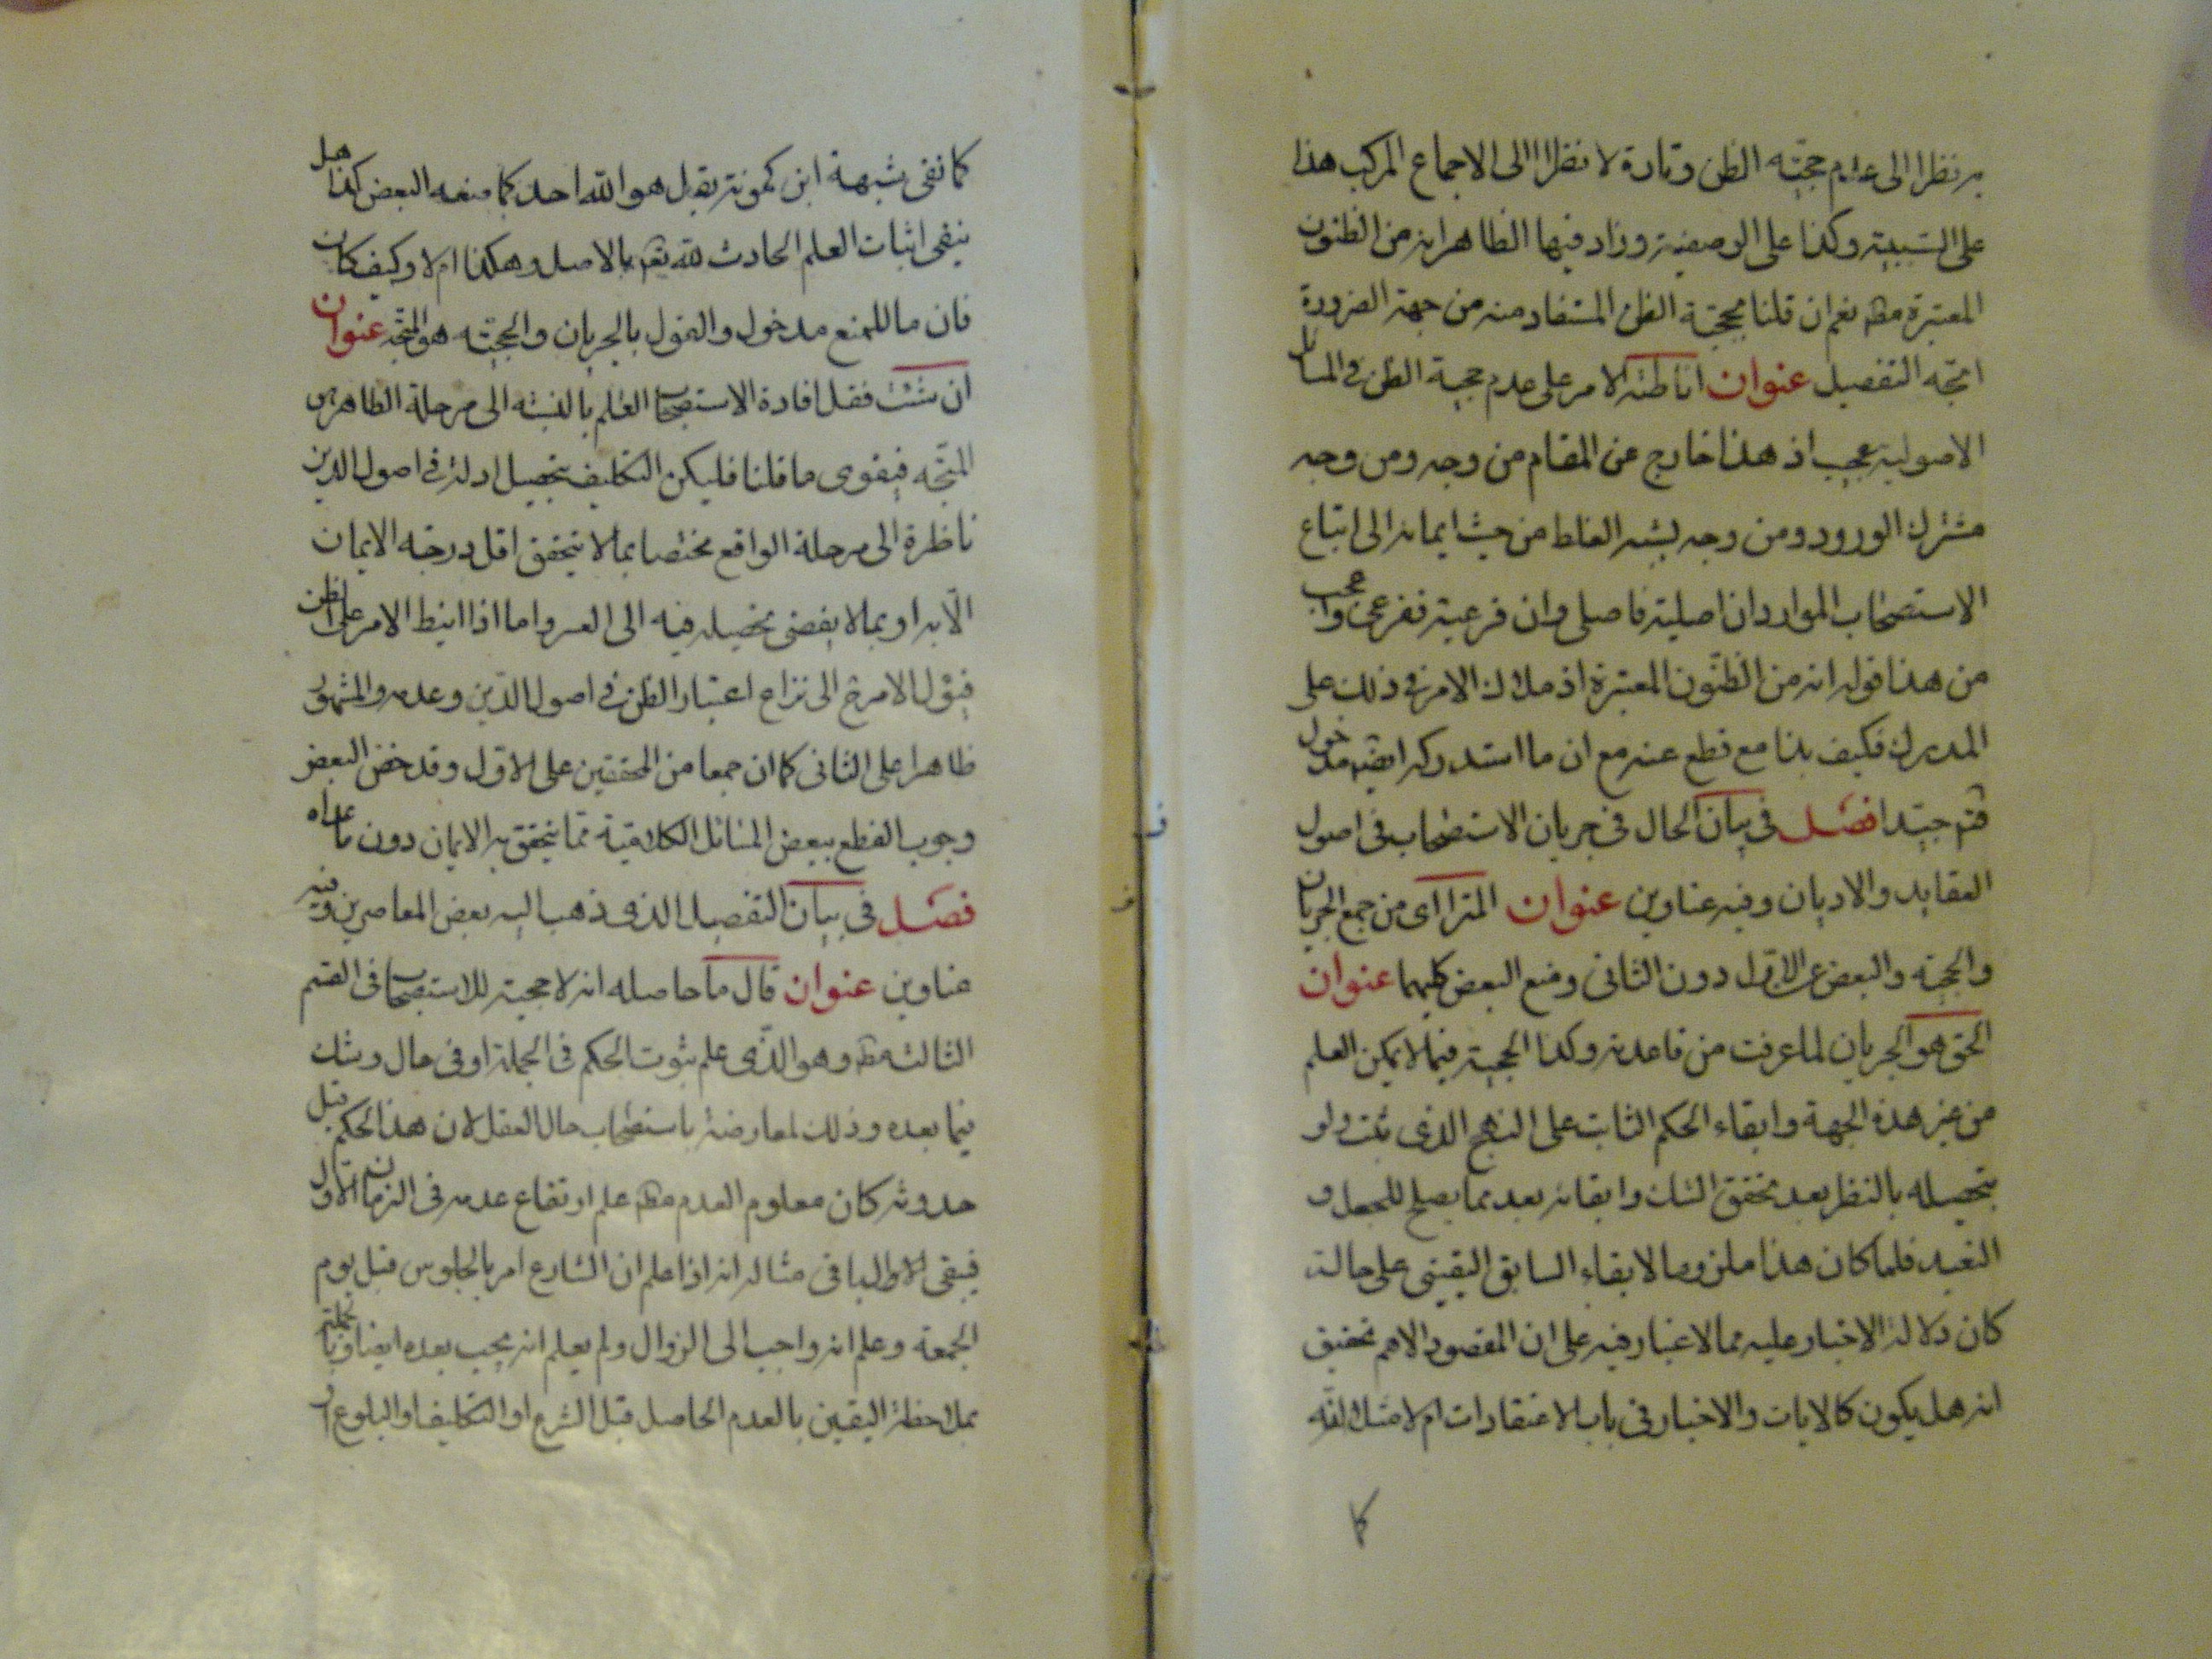 به نظرا الى عدم حجيّته الظن وتارة لا نظرا الى الاجماع المركب هذا
على السّببية وكذا على الوصفية وزاد فيها الظاهر انه من الظنون
المعتبرة مط نعم ان قلنا بحجيّة الظن المستفاد منه من جهة الضرورة
اتجه التفصيل عنوان اناطة الامر على عدم حجية الظن في المسائل
الاصولية عجيب اذ هذا خارج عن المقام من وجه ومن وجه
مشترك الورود ومن وجه يشبه الغلط من حيث ايمائه الى اتباع
الاستصحاب الموارد ان اصلية فاصلي وان فرعية ففرعي واعجب
من هذا قوله انه من الظنّون المعتبرة اذ ملاك الامر في ذلك على
المدرك فكيف بذا مع قطع عنه مع ان ما استدركه ايضا مدخول
فتم جيّدا فصل في بيان الحال في جريان الاستصحاب في اصول
العقايد والاديان وفيه عناوين عنوان المترا اى من جمع الجريان
والحجية والبعض على الاول دون الثاني ومنع البعض كليهما عنوان
الحق هو الجريان لما عرفت من قاعدته وكذا الحجية فيما لا يمكن العلم
من غير هذه الجهة وابقاء الحكم الثابت على النهج الذى ثبت ولو
بتحصيله بالنظر بعد تحقق الشك وابقائه بعد مما يصلح للجعل و
التعبد فلما كان هذا ملزوما لابقاء السابق اليقينى على حالة
كان دلالة الاخبار عليه مما لا غبار فيه على ان المقصود الاهم تحقيق
انه هل يكون كالايات والاخبار في باب الاعتقادات ام لا مثلا انه
كما
كما نفى شبهة ابن كمونة بقل هو الله احد كما منعه البعض كذا هل
ينفى اثبات العلم الحادث لله تعم بالاصل وهكذا ام لا وكيف كان
فان ما للمنع مدخول والقول بالجريان والحجيّة هو المتّجه عنوان
ان شئت فقل افادة الاستصحاب العلم بالنسبة الى مرحلة الظاهر هى
المتّجه فيقوى ما قلنا فليكن التكليف بتحصيل ادلة في اصول الدين
ناظرة الى مرحلة الواقع مختصا بما لا يتحقق اقل درجة الايمان
الّا به او بما لا يفضى تحصيله فيه الى العسر واما اذا انيط الامر على الظن
فيؤل الامر ح الى نزاع اعتبار الظن في اصول الدّين وعدمه والمشهور
ظاهرا على الثانى كما ان جمعا من المحققين على الاول وقد خص البعض
وجوب القطع ببعض المسائل الكلامية ممّا يتحقق به الايمان دون ما عداه
فصل في بيان التفصيل الذى ذهب اليه بعض المعاصرين وفيه
عناوين عنوان قال ما حاصله انه لا حجية للاستصحاب في القسم
الثالث مط وهو الذّى علم ثبوت الحكم في الجملة او في حال وشك
فيما بعده وذلك لمعارضة باستصحاب حال العقل لان هذا الحكم قبل
حدوثه كان معلوم العدم مط علم ارتفاع عدمه في الزمان الاول
فيبقى الاول باقى مثاله انه اذا علم ان الشارع امر بالجلوس قبل يوم
الجمعة وعلم انه واجب الى الزوال ولم يعلم انه يجب بعده ايضا وبالجملة
بملاحظة اليقين بالعدم الحاصل قبل الشرع او التكليف او البلوغ او